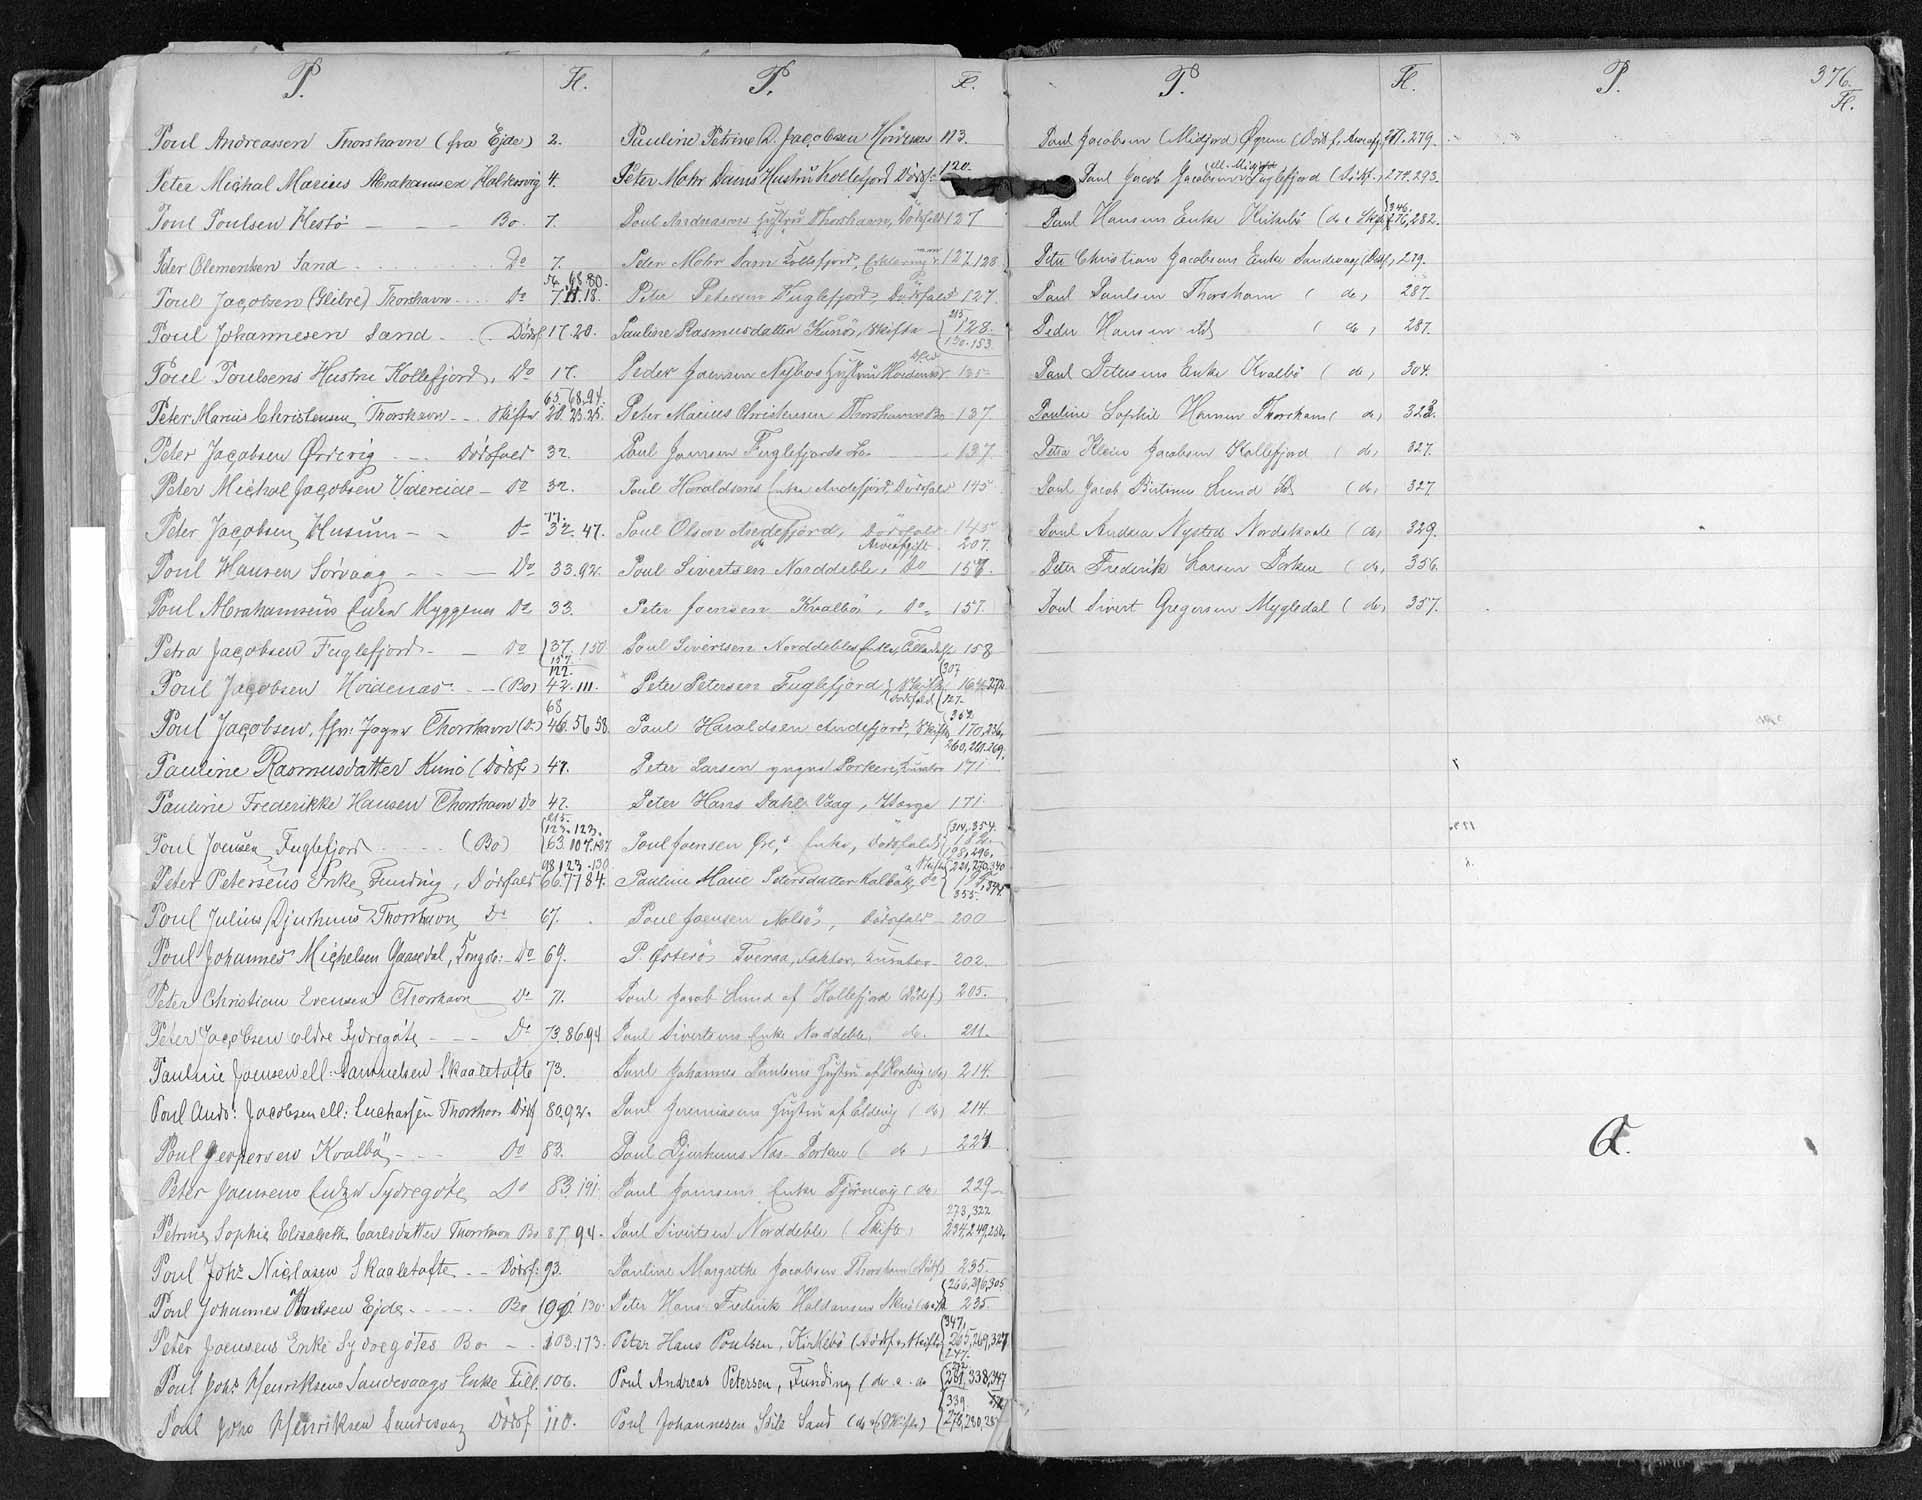 P. Fl.
Poul Andreassen Thorshavn (fra Ejde) 2.
Peter Michal Marius Abrahamsen Haldersvig 4.
Poul Poulsen Hestö - - - Bo. 7.
Peder Clementsen Sand Do 7.
74. 68 80.
Poul Jacobsen (Glibre) Thorshavn Do 7 11. 18.
Poul Johannesen Sand (Dödsf. 17. 20.
Poul Poulsens Hustru Kollefjord, Do 17.
65, 68, 94.
Peter Marius Christensen, Thorshavn - - Skifte 20. 23. 25.
Peter Jacobsen Ördevig - - Dödsfald 32.
Peter Michal Jacobsen Videreide - Do 32.
77.
Peter Jacobsen Husum - - Do 32. 47.
Poul Hansen Sörvaag - - - Do 33. 92.
Poul Abrahamsens Enke Myggenes Do 33.
Petra Jacobsen Fuglefjord - - Do 37. 150
157.
122.
Poul Jacobsen Hoidenæs - - (Bo) 42. 111.
68
Poul Jacobsen, Thorshavn (Do) 46. 56 58.
Pauline Rasmusdatter Kunö (Dödsf.) 47.
Pauline Frederikke Hansen Thorshavn Do 47.
215.
123. 123.
Poul Joensen Fuglefjord (Bo) 63. 107. 107
98, 123. 130
Peter Petersens Enke Funding, Dödsfald 66. 77 84.
Poul Julius Djurhuus Thorshavn Do 67.
Poul Johannes Michelsen Gaasedal, Do 69.
Peter Christian Evensen Thorshavn Do 71.
Peter Jacobsen ældre Sydregöte - - - Do 73, 86 94
Pauline Joensen ell: Samuelsen Skaaletofte 73.
Poul Andr: Jacobsen ell: Thorshavn Dödsf 80, 92.
Poul Jespersen Kvalbö - - - Do 83.
Peter Joensens Enke Sydregöte Do 83. 191.
Petrine Sophie Elisabeth Carlsdatter Thorshavn Bo 87. 94.
Poul Johs Niclasen Skaaletofte - - Dödsf: 93.
Poul Johannes Poulsen Ejde - - - - Bo 99. 130.
Peter Joensens Enke Sydregötes Bo - - 103. 173.
Poul Johs Henriksens Sandevaags Enke Till. 106.
Poul Johs Henriksen Sandevaag Dödsf 110.
P. Fl.
Pauline Petrine D. Jacobsen Hoidenæs 113.
Peter Mohr Dams Hustru Kollefjord Dödsf: 120.
Poul Andreasens Hustru Thorshavn, Dödsfald 127
Peder Mohr Dam Kollefjord, 127, 128
Peter Petersen Fuglefjord, Dödsfald 127.
215
Pauline Rasmusdatter Kunö, Skifte - 128.
130. 153.
Peder Joensen Nybos Hustru Hoidenæs 135
Peter Marius Christensen Thorshavns Bo 137.
Poul Joensen Fuglefjords Bo 137
Poul Haraldsens Enke Andefjord, Dödsfald 145
Poul Olsen Andefjord, Dödsfald 145
do Arveafgift 207.
Poul Sivertsen Norddeble, Do 157.
Peter Joensen Kvalbö, Do 157.
Poul Sivertsen Norddebles Enke, 158
307
Peter Petersen Fuglefjord Skifte 164, 272
Dödsfald 127.
362
Poul Haraldsen Andefjord, Skifte 170, 236,
260, 261. 269.
Peter Larsen yngre Porkere, Kurator 171
Peter Hans Dahl Vaag, Værge 171.
314, 354.
Poul Joensen Öre, Enke, Dödsfald 182.
198, 296.
Skifte 221, 270, 340
Pauline Marie Petersdatter Kalbak, do
355.
Poul Joensen Nolsö, Dödsfald 200
P. Österö Tveraa, Faktor, Kurator 202.
Poul Jacob Lund af Kollefjord (Dödsf.) 205.
Poul Sivertsens Enke Norddeble do. 211.
Poul Johannes Poulsens Hustru af (do) 214.
Poul Jeremiasens Hustru af Eldevig (do) 214.
Poul Djurhuus Næs Porkere (do) 224
Poul Joensens Enke Tjörnevig (do) 229
273, 322
Poul Sivertsen Norddeble (Skifte) 234, 249, 250.
Pauline Margrethe Jacobsen Thorshavn (Dödsf) 235.
266, 296, 305
Peter Hans Frederik Haldansen 235.
347,
Peter Hans Poulsen, Kirkebö (Dödsf. & Skifte) 265, 269, 327
247.
272.
Poul Andreas Petersen, Funding (do & do 281. 338, 347
339.
Poul Johannesen Sand (do & Skifte) 278, 280, 287
P. Fl.
Poul Jacobsen (Midfjord) Öyrum (Dödsf, Arveafg.) 271. 279.
ell. Midfjord
Poul Jacob Jacobsen Fuglefjord (Dödsf.) 274. 293.
346.
Poul Hansens Enke Kirkebö (do & Skifte) 276, 282.
Peter Christian Jacobsens Enke Sandevaag (Dödsf) 279.
Poul Poulsen Thorshavn (do) 287.
Peder Hansen ibd (do) 287.
Poul Petersens Enke Kvalbö (do) 304.
Pauline Sophie Hansen Thorshavn (do) 323.
Petra Klein Jacobsen Kollefjord (do) 327.
Poul Jacob Lund ibd (do) 327.
Poul Andreas Nysted Nordskaale (do) 329.
Peter Frederik Larsen Porkere (do) 356.
Poul Sivert Gregersen Mygledal (do) 357.
P. 376.
Fl.
Q.